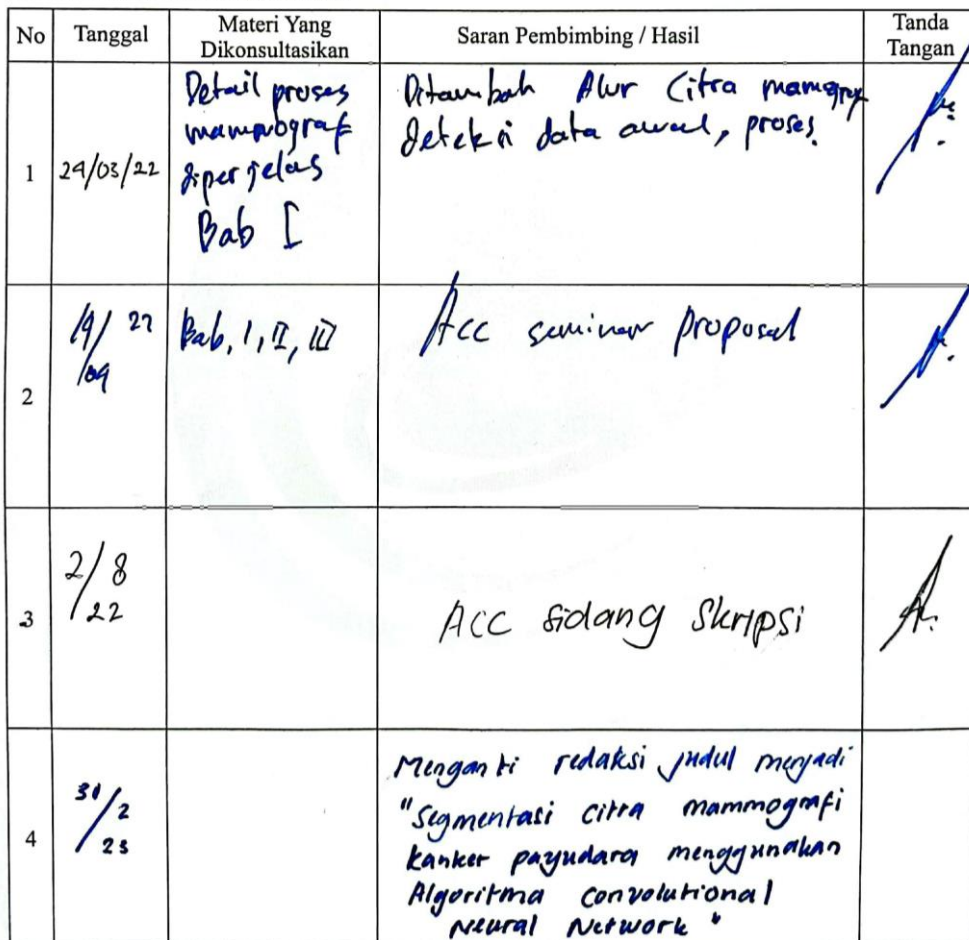 No Tanggal Materi Yang Dikonsultasikan Saran Pembimbing / Hasil Tanda Tangan
1
24/03/22
Detail proses
mammograf
diperjelas
Bab I
Ditambah Alur Citra mamograf
deteksi data awal, proses.
2
19/ 22
/04
Bab, I, II, III
Acc seminar proposal
3
2/8
/22
Acc sidang Skripsi
4
/2
23
Menganti redaksi judul menjadi
"Segmentasi citra mammografi
kanker payudara menggunakan
Algoritma convolutional
Neural Network"